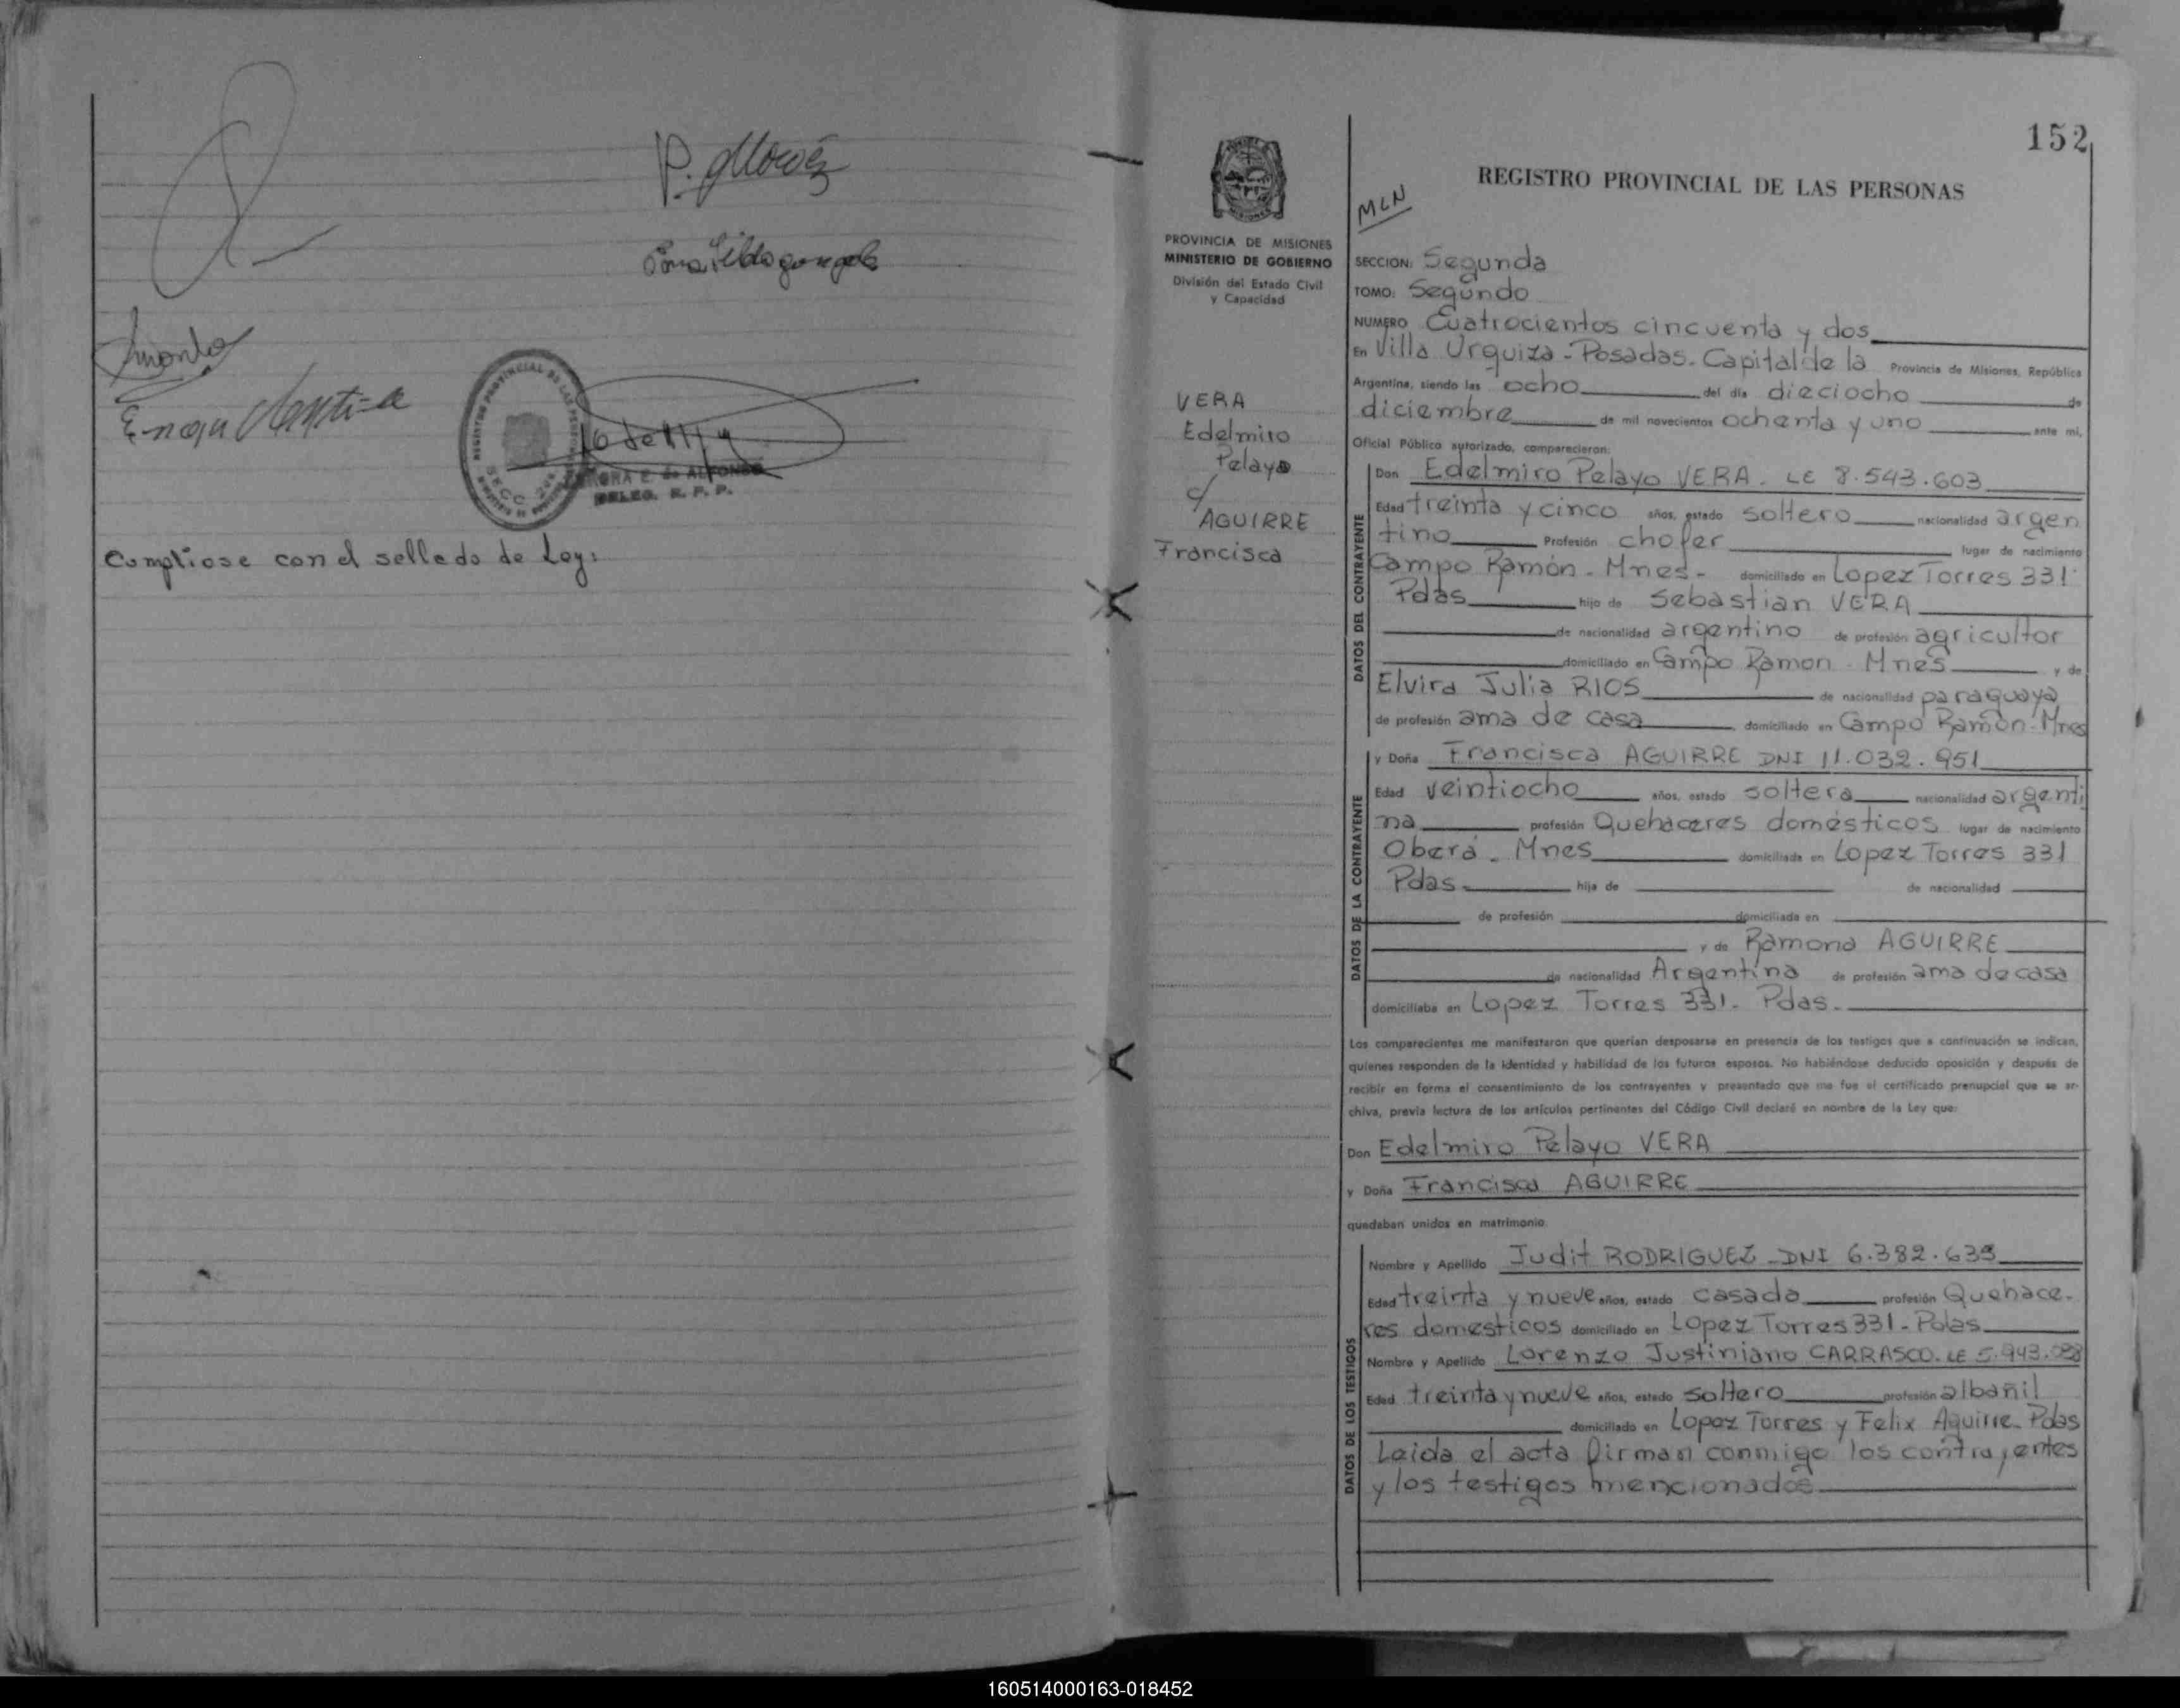 Cumpliose con el sellado de Ley:
152
REGISTRO PROVINCIAL DE LAS PERSONAS
MLN
PROVINCIA DE MISIONES
MINISTERIO DE GOBIERNO
División del Estado Civil
y Capacidad
VERA
Edelmiro
Pelayo
c/
AGUIRRE
Francisca
SECCION: Segunda
TOMO: Segundo
NUMERO Cuatrocientos cincuenta y dos
En Villa Urquiza - Posadas. Capital de la Provincia de Misiones, República
Argentina, siendo las ocho del día dieciocho de
diciembre de mil novecientos ochenta y uno ante mi,
Oficial Público autorizado, comparecieron:
DATOS DEL CONTRAYENTE
Don Edelmiro Pelayo VERA. LE 8.543.603
Edad treinta y cinco años, estado soltero nacionalidad argen
tino Profesión chofer lugar de nacimiento
Campo Ramón - Mnes - domiciliado en Lopez Torres 331
Pdas hijo de Sebastian VERA
de nacionalidad argentino de profesión agricultor
domiciliado en Campo Ramon - Mnes y de
Elvira Julia RIOS de nacionalidad paraguaya
de profesión ama de casa domiciliado en Campo Ramón - Mnes
DATOS DE LA CONTRAYENTE
y Doña Francisca AGUIRRE DNI 11.032.951
Edad veintiocho años, estado soltera nacionalidad argenti
na profesión Quehaceres domésticos lugar de nacimiento
Oberá - Mnes domiciliada en Lopez Torres 331
Pdas hija de de nacionalidad
de profesión domiciliada en
y de Ramona AGUIRRE
de nacionalidad Argentina de profesión ama de casa
domiciliaba en Lopez Torres 331 - Pdas.
Los comparecientes me manifestaron que querían desposarse en presencia de los testigos que a continuación se indican,
quienes responden de la identidad y habilidad de los futuros esposos. No habiéndose deducido oposición y después de
recibir en forma el consentimiento de los contrayentes y presentado que me fue el certificado prenupcial que se ar-
chiva, previa lectura de los artículos pertinentes del Código Civil declaré en nombre de la Ley que:
Don Edelmiro Pelayo VERA
y Doña Francisca AGUIRRE
quedaban unidos en matrimonio
DATOS DE LOS TESTIGOS
Nombre y Apellido Judit RODRIGUEZ - DNI 6.382.
Edad treinta y nueve años, estado casada profesión Quehace-
res domesticos domiciliado en Lopez Torres 331 - Pdas
Nombre y Apellido Lorenzo Justiniano CARRASCO. LE 5.943.
Edad treinta y nueve años, estado soltero profesión albañil
domiciliado en Lopez Torres y Felix Aguirre - Pdas
Leida el acta firman conmigo los contrayentes
y los testigos mencionados
160514000163-018452